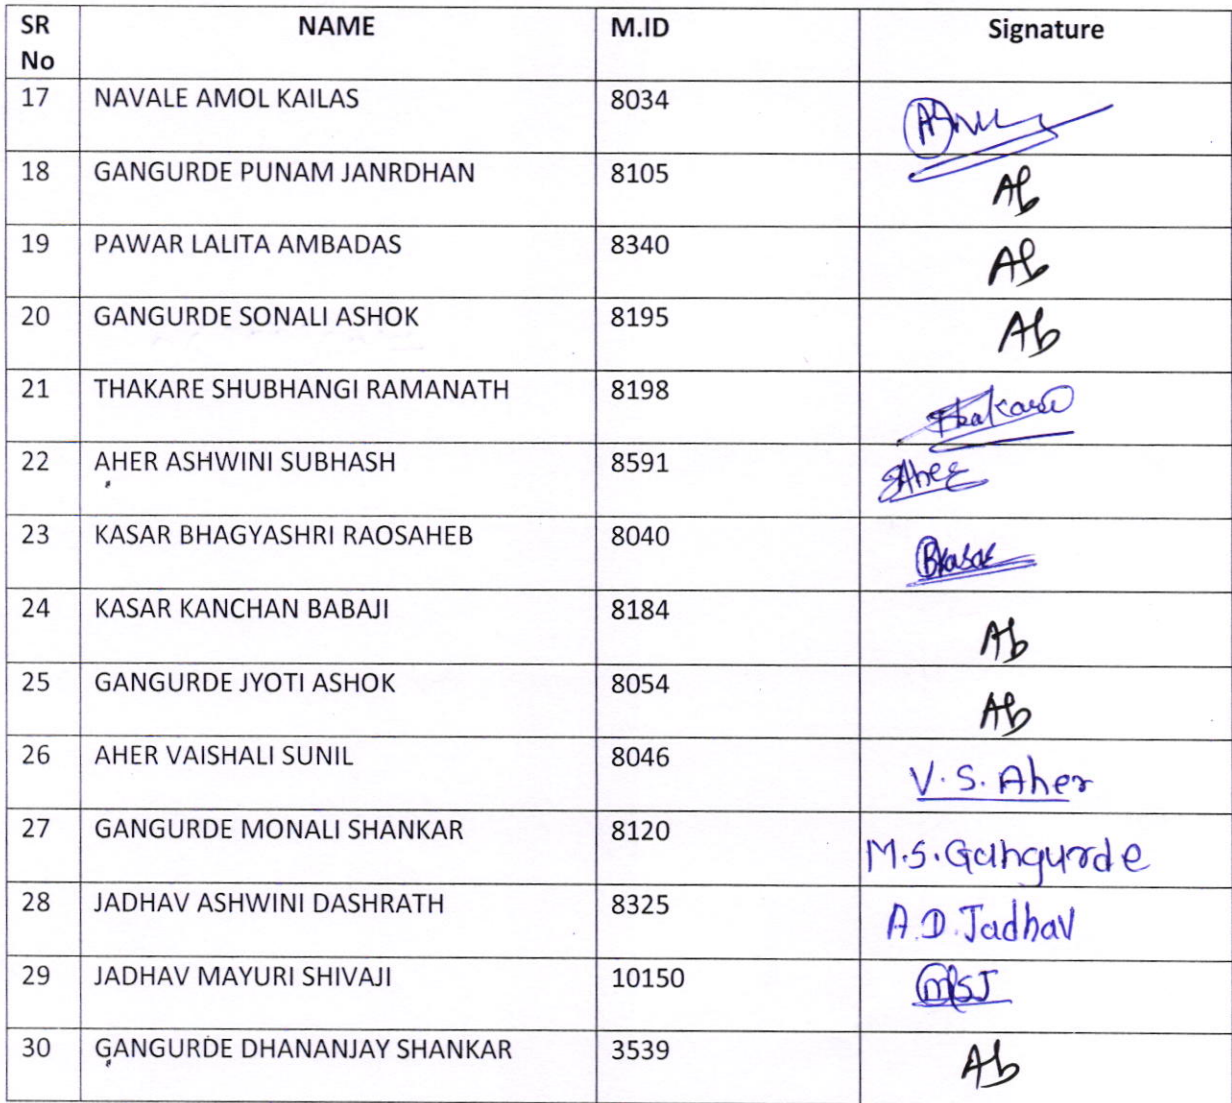 SR No NAME M.ID Signature
17 NAVALE AMOL KAILAS 8034
18 GANGURDE PUNAM JANRDHAN 8105 Ab
19 PAWAR LALITA AMBADAS 8340 Ab
20 GANGURDE SONALI ASHOK 8195 Ab
21 THAKARE SHUBHANGI RAMANATH 8198 Thakare
22 AHER ASHWINI SUBHASH 8591 Aher
23 KASAR BHAGYASHRI RAOSAHEB 8040 BKasar
24 KASAR KANCHAN BABAJI 8184 Ab
25 GANGURDE JYOTI ASHOK 8054 Ab
26 AHER VAISHALI SUNIL 8046 V.S. Aher
27 GANGURDE MONALI SHANKAR 8120 M.S.Gangurde
28 JADHAV ASHWINI DASHRATH 8325 A.D.Jadhav
29 JADHAV MAYURI SHIVAJI 10150 MSJ
30 GANGURDE DHANANJAY SHANKAR 3539 Ab